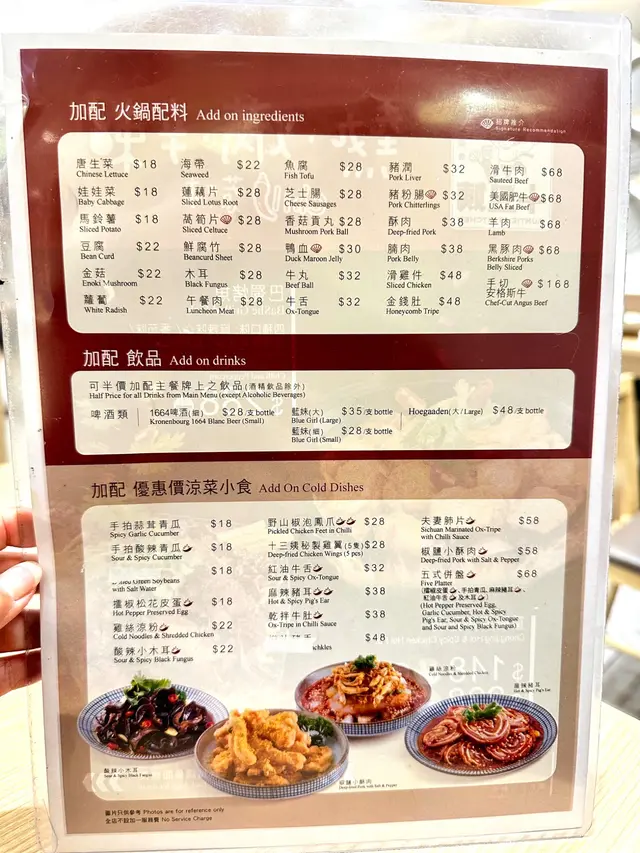 加配 火鍋配料 Add on ingredients
招牌推介
Signature Recommendation
唐生菜 $18
Chinese Lettuce
娃娃菜 $18
Baby Cabbage
馬鈴薯 $18
Sliced Potato
豆腐 $22
Bean Curd
金菇 $22
Enoki Mushroom
蘿蔔 $22
White Radish
海帶 $22
Seaweed
蓮藕片 $28
Sliced Lotus Root
萵筍片 $28
Sliced Celtuce
鮮腐竹 $28
Beancurd Sheet
木耳 $28
Black Fungus
午餐肉 $28
Luncheon Meat
魚腐 $28
Fish Tofu
芝士腸 $28
Cheese Sausages
香菇貢丸 $28
Mushroom Pork Ball
鴨血 $30
Duck Maroon Jelly
牛丸 $32
Beef Ball
牛舌 $32
Ox-Tongue
豬潤 $32
Pork Liver
豬粉腸 $32
Pork Chitterlings
酥肉 $38
Deep-fried Pork
腩肉 $38
Pork Belly
滑雞件 $48
Sliced Chicken
金錢肚 $48
Honeycomb Tripe
滑牛肉 $68
Sauteed Beef
美國肥牛 $68
USA Fat Beef
羊肉 $68
Lamb
黑豚肉 $68
Berkshire Porks
Belly Sliced
手切 $168
安格斯牛
Chef-Cut Angus Beef
加配 飲品 Add on drinks
可半價加配主餐牌上之飲品(酒精飲品除外)
Half Price for all Drinks from Main Menu (except Alcoholic Beverages)
啤酒類
1664啤酒(細) $28/支bottle
Kronenbourg 1664 Blanc Beer (Small)
藍妹(大) $35/支bottle
Blue Girl (Large)
藍妹(細) $28/支bottle
Blue Girl (Small)
Hoegaaden(大/Large) $48/支bottle
加配 優惠價涼菜小食 Add On Cold Dishes
手拍蒜茸青瓜 $18
Spicy Garlic Cucumber
手拍酸辣青瓜 $18
Sour & Spicy Cucumber
$18
Green Soybeans
with Salt Water
擂椒松花皮蛋 $18
Hot Pepper Preserved Egg
雞絲涼粉 $22
Cold Noodles & Shredded Chicken
酸辣小木耳 $22
Sour & Spicy Black Fungus
野山椒泡鳳爪 $28
Pickled Chicken Feet in Chilli
十三姨秘製雞翼(5隻) $28
Deep-fried Chicken Wings (5 pcs)
紅油牛舌 $32
Sour & Spicy Ox-Tongue
麻辣豬耳 $38
Hot & Spicy Pig's Ear
乾拌牛肚 $38
Ox-Tripe in Chilli Sauce
$48
夫妻肺片 $58
Sichuan Marinated Ox-Tripe
with Chilli Sauce
椒鹽小酥肉 $58
Deep-fried Pork with Salt & Pepper
五式併盤 $68
Five Platter
(擂椒皮蛋、手拍青瓜, 麻辣豬耳,
紅油牛舌 及 酸木耳)
(Hot Pepper Preserved Egg,
Garlic Cucumber, Hot & Spicy
Pig's Ear, Sour & Spicy Ox-Tongue
and Sour and Spicy Black Fungus)
雞絲涼粉
Cold Noodles & Shredded Chicken
麻辣豬耳
Hot & Spicy Pig's Ear
酸辣小木耳
Sour & Spicy Black Fungus
椒鹽小酥肉
Deep-fried Pork with Salt & Pepper
圖片只供參考 Photos are for reference only
全店不設加一服務費 No Service Charge